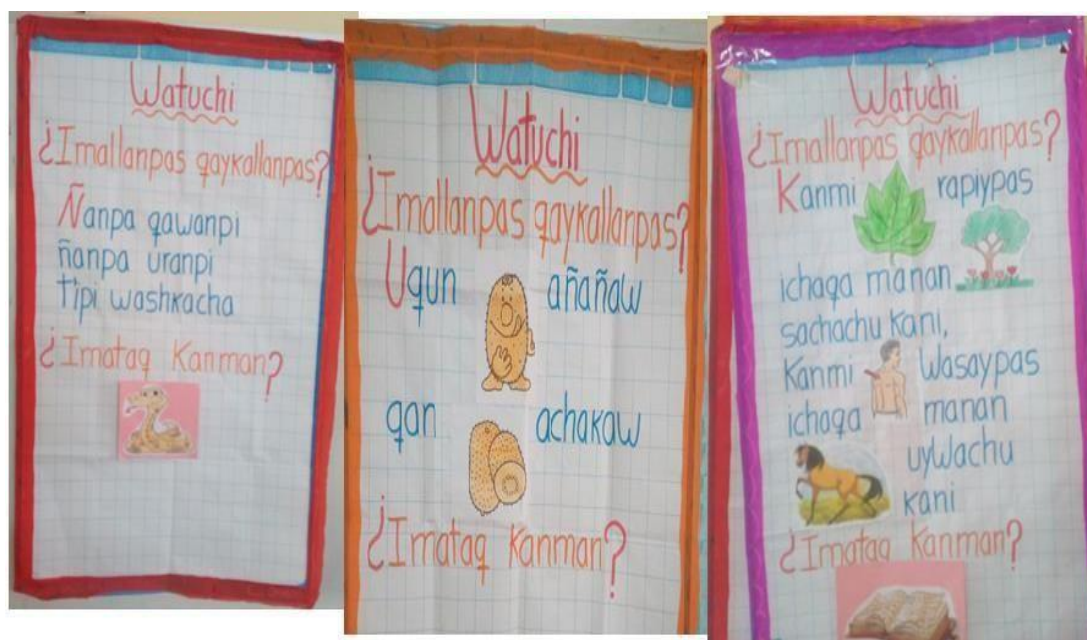 Watuchi
¿Imallanpas qaykallanpas?
Ñanpa qawanpi
ñanpa uranpi
tipi washkacha
¿Imataq Kanman?
Watuchi
¿Imallanpas qaykallanpas?
Uqun añañaw
qan achakaw
¿Imataq Kanman?
Watuchi
¿Imallanpas qaykallanpas?
Kanmi rapiypas
ichaqa manan
sachachu kani,
Kanmi Wasaypas
ichaqa manan
uyWachu
kani
¿Imataq Kanman?